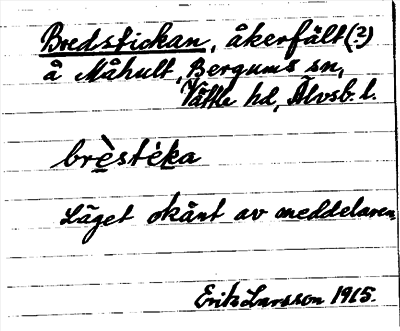 Bredstickan, åkerfält(?)
å Måhult, Bergums sn,
Vättle hd, Älvsb. l.
brèstéka
Läget okänt av meddelaren
Erik Larsson 1915.